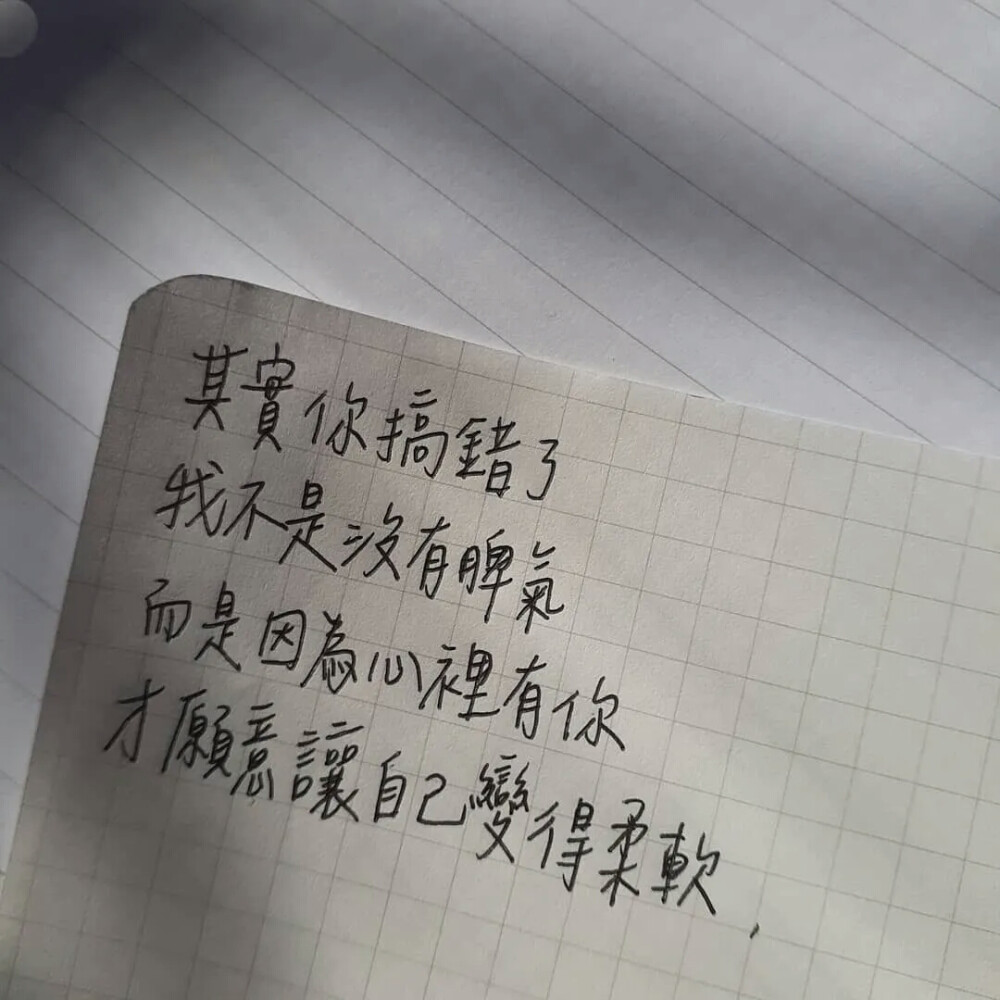 其實你搞錯了
我不是沒有脾氣
而是因為心裡有你
才願意讓自己變得柔軟.